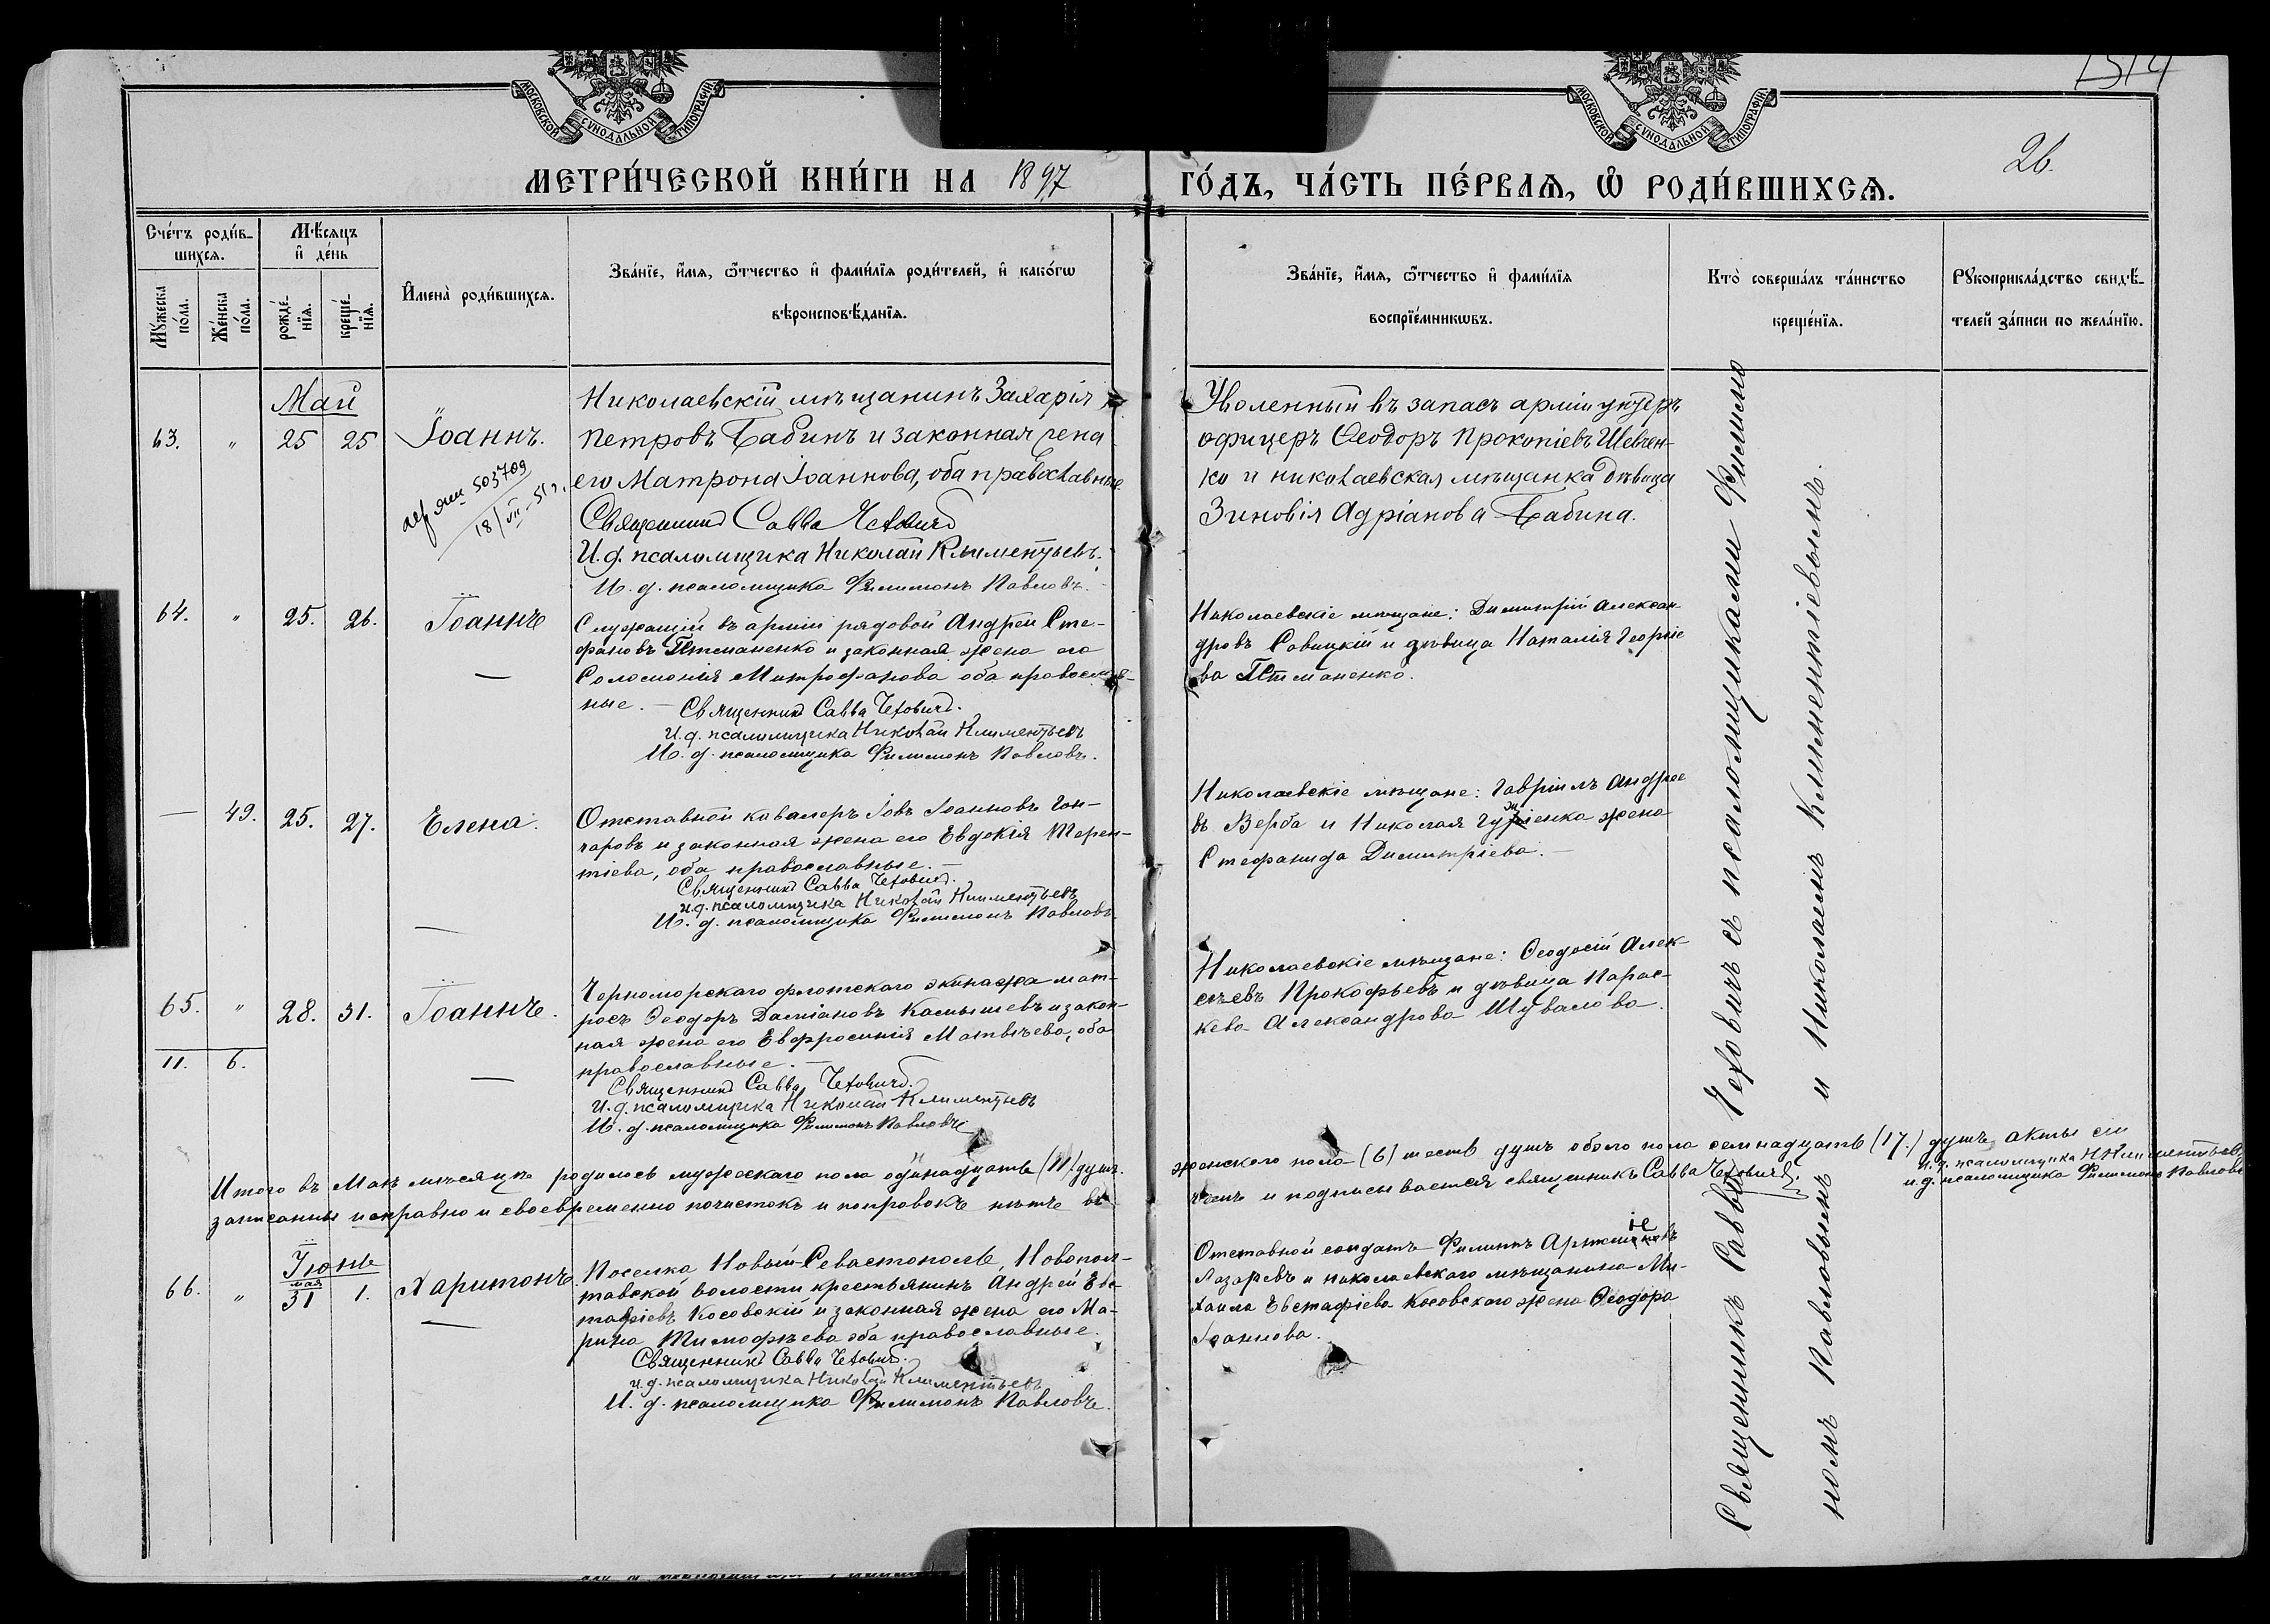 1514
26.
МОСКОВСКОЙ СѴНОДАЛЬНОЙ ТИПОГРАФІИ
МОСКОВСКОЙ СѴНОДАЛЬНОЙ ТИПОГРАФІИ
МЕТРИ́ЧЕСКОЙ КНИ́ГИ НА 1897 ГО́ДЪ, ЧА́СТЬ ПЕ́РВАѦ, Ѡ҆ РОДИ́ВШИХСѦ.
Сче́тъ роди́в-
шихсѧ.
Мꙋ́жеска по́ла.
Же́нска по́ла.
Мѣ́сѧцъ и҆ де́нь
рожде́-нїѧ.
креще́-нїѧ.
И҆мена̀ роди́вшихсѧ.
Зва́нїе, и҆́мѧ, ѻ҆́тчество и҆ фами́лїѧ роди́телей, и҆ како́гѡ
вѣроисповѣ́данїѧ.
Зва́нїе, и҆́мѧ, ѻ҆́тчество и҆ фами́лїѧ
воспрїе́мникѡвъ.
Кто̀ соверша́лъ та́инство
креще́нїѧ.
Рꙋкоприкла́дство свидѣ́-
телей за́писи по жела́нїю.
Май
63. " 25 25 Іоаннъ.
503709
18/VII-51 г.
Николаевскій мѣщанинъ Захарія
Петровъ Бабинъ и законная жена
его Матрона Іоаннова, оба православные.
Священникъ Савва Чехович
И.д. псаломщика Николай Климентьевъ.
И.д. псаломщика Филимонъ Павловъ.
Уволенный въ запасъ арміи унтеръ
офицеръ Ѳеодоръ Прокопіевъ Шевчен-
ко и николаевская мѣщанка дѣвица
Зиновія Адріанова Бабина.
64. " 25. 26. Іоаннъ
Служащій въ арміи рядовой Андрей Сте-
фановъ Птеманенко и законная жена его
Соломонія Митрофанова оба православ-
ные. — Священникъ Савва Чехович.
И.д. псаломщика Николай Климентьевъ
И.д. псаломщика Филимонъ Павловъ.
Николаевскіе мѣщане: Димитрій Алексан-
дровъ Савицкій и дѣвица Наталія Георгіе
ва
— 49. 25. 27. Елена.
Отставной кавалеръ Іовъ Іоанновъ Гон-
чаровъ и законная жена его Евдокія Терен-
тіева, оба православные. —
Священникъ Савва Чехович.
И.д. псаломщика Николай Климентьевъ
И.д. псаломщика Филимонъ Павловъ
Николаевскіе мѣщане: Гавріилъ Андрее
въ Верба и Николая жена
Стефанида Димитріева. —
65. " 28. 31. Іоаннъ.
11. 6.
Черноморскаго флотскаго экипажа мат-
росъ Ѳеодоръ Даміановъ Камышевъ и закон-
ная жена его Евфросинія Матвѣева, оба
православные. —
Священникъ Савва Чехович.
И.д. псаломщика Николай Климентьевъ
И.д. псаломщика Филимонъ Павловъ
Николаевскіе мѣщане: Ѳеодосій Алек-
сѣевъ Прокофьевъ и дѣвица Парас-
кева Александрова Шувалова.
Итого въ Маѣ мѣсяцѣ родилось мужескаго пола одинадцать (11) душъ. женскаго пола (6) шесть душъ обоего пола семнадцать (17.) душъ акты сіи
записанны исправно и своевременно почистокъ и поправокъ нѣтъ въ чемъ и подписываемся священникъ Савва Чехович.
и.д. псаломщика Н Климентьевъ
и.д. псаломщика Филимонъ Павловъ
Іюнь
66. " мая 31 1. Харитонъ
Поселка Новый-Севастополь, Новопол-
тавской волости крестьянинъ Андрей Евс-
тафіевъ Косовскій и законная жена его Ма-
рина Тимофѣева оба православные.
Священникъ Савва Чехович.
И.д. псаломщика Николай Климентьевъ
И.д. псаломщика Филимонъ Павловъ.
Отставной солдатъ Филиппъ
Лазаревъ и николаевского мѣщанина Ми-
хаила Евстафіева Косовскаго жена Ѳеодора
Іоаннова.
Священникъ Савва Чеховичъ съ псаломщиками Филимо
номъ Павловымъ и Николаемъ Климентіевымъ.